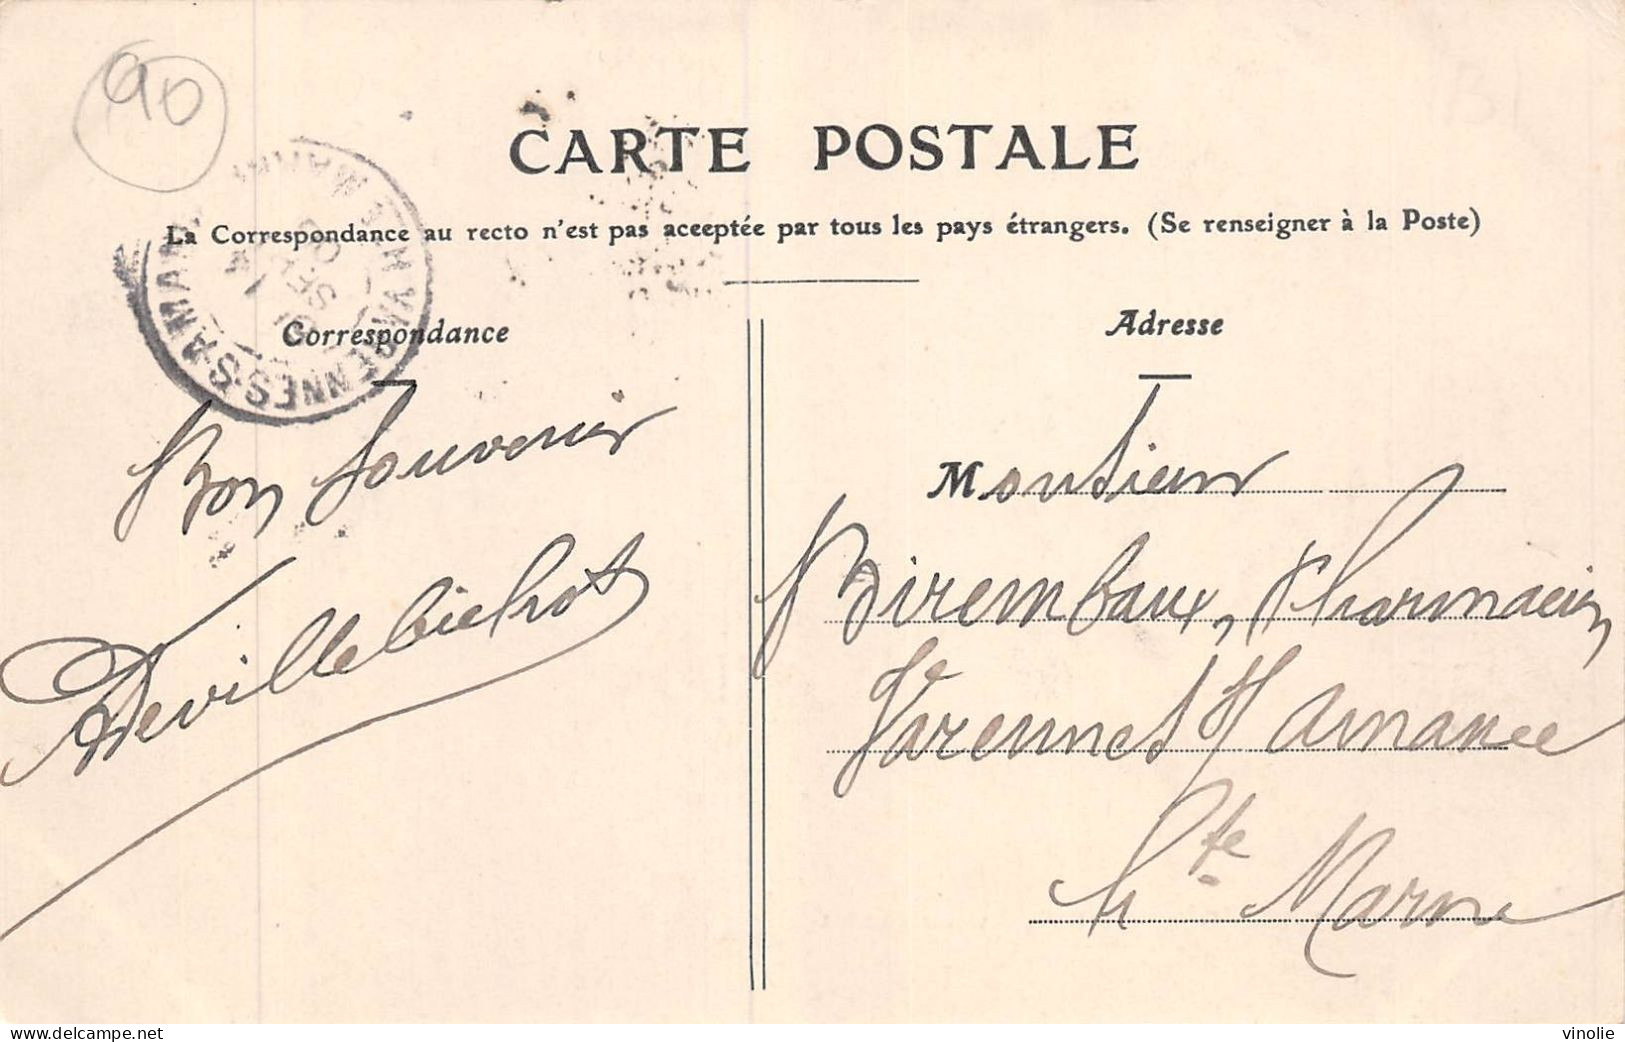 90
CARTE POSTALE
La Correspondance au recto n'est pas acceptée par tous les pays étrangers. (Se renseigner à la Poste)
Correspondance
Bon souvenir
Devillebichot
Adresse
Monsieur
Birembaux, Pharmacien
Varennes s/ Amance
Hte Marne
VARENNES S AMANCE
Hte MARNE
vinolie